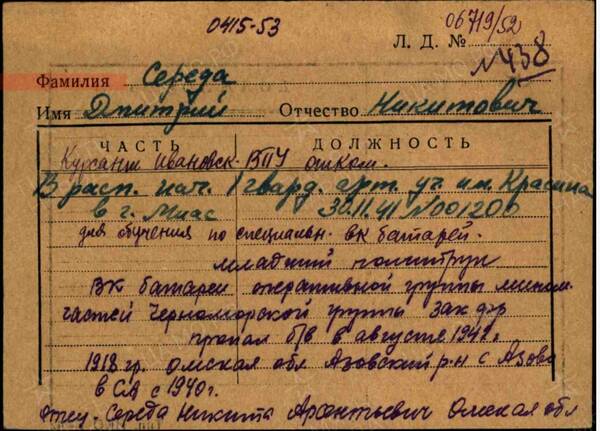 0415-53
06719/52
Л. Д. №
№438
Фамилия Середа
Имя Дмитрий Отчество Никитович
ЧАСТЬ ДОЛЖНОСТЬ
Курсант Ивановск. ВПУ оком.
В расп. нач. 1 гвард. арт. уч. им. Красина
в г. Миас 30.11.41 №001200
для обучения по специальн. вк батарей.
младший политрук
ВК батареи оперативной группы мином.
частей Черноморской группы Зак фр
пропал б/в в августе 1942г.
1918г. Омская обл Азовский р-н с Азово
в СА с 1940г.
отец - Середа Никита Арсентьевич Омская обл